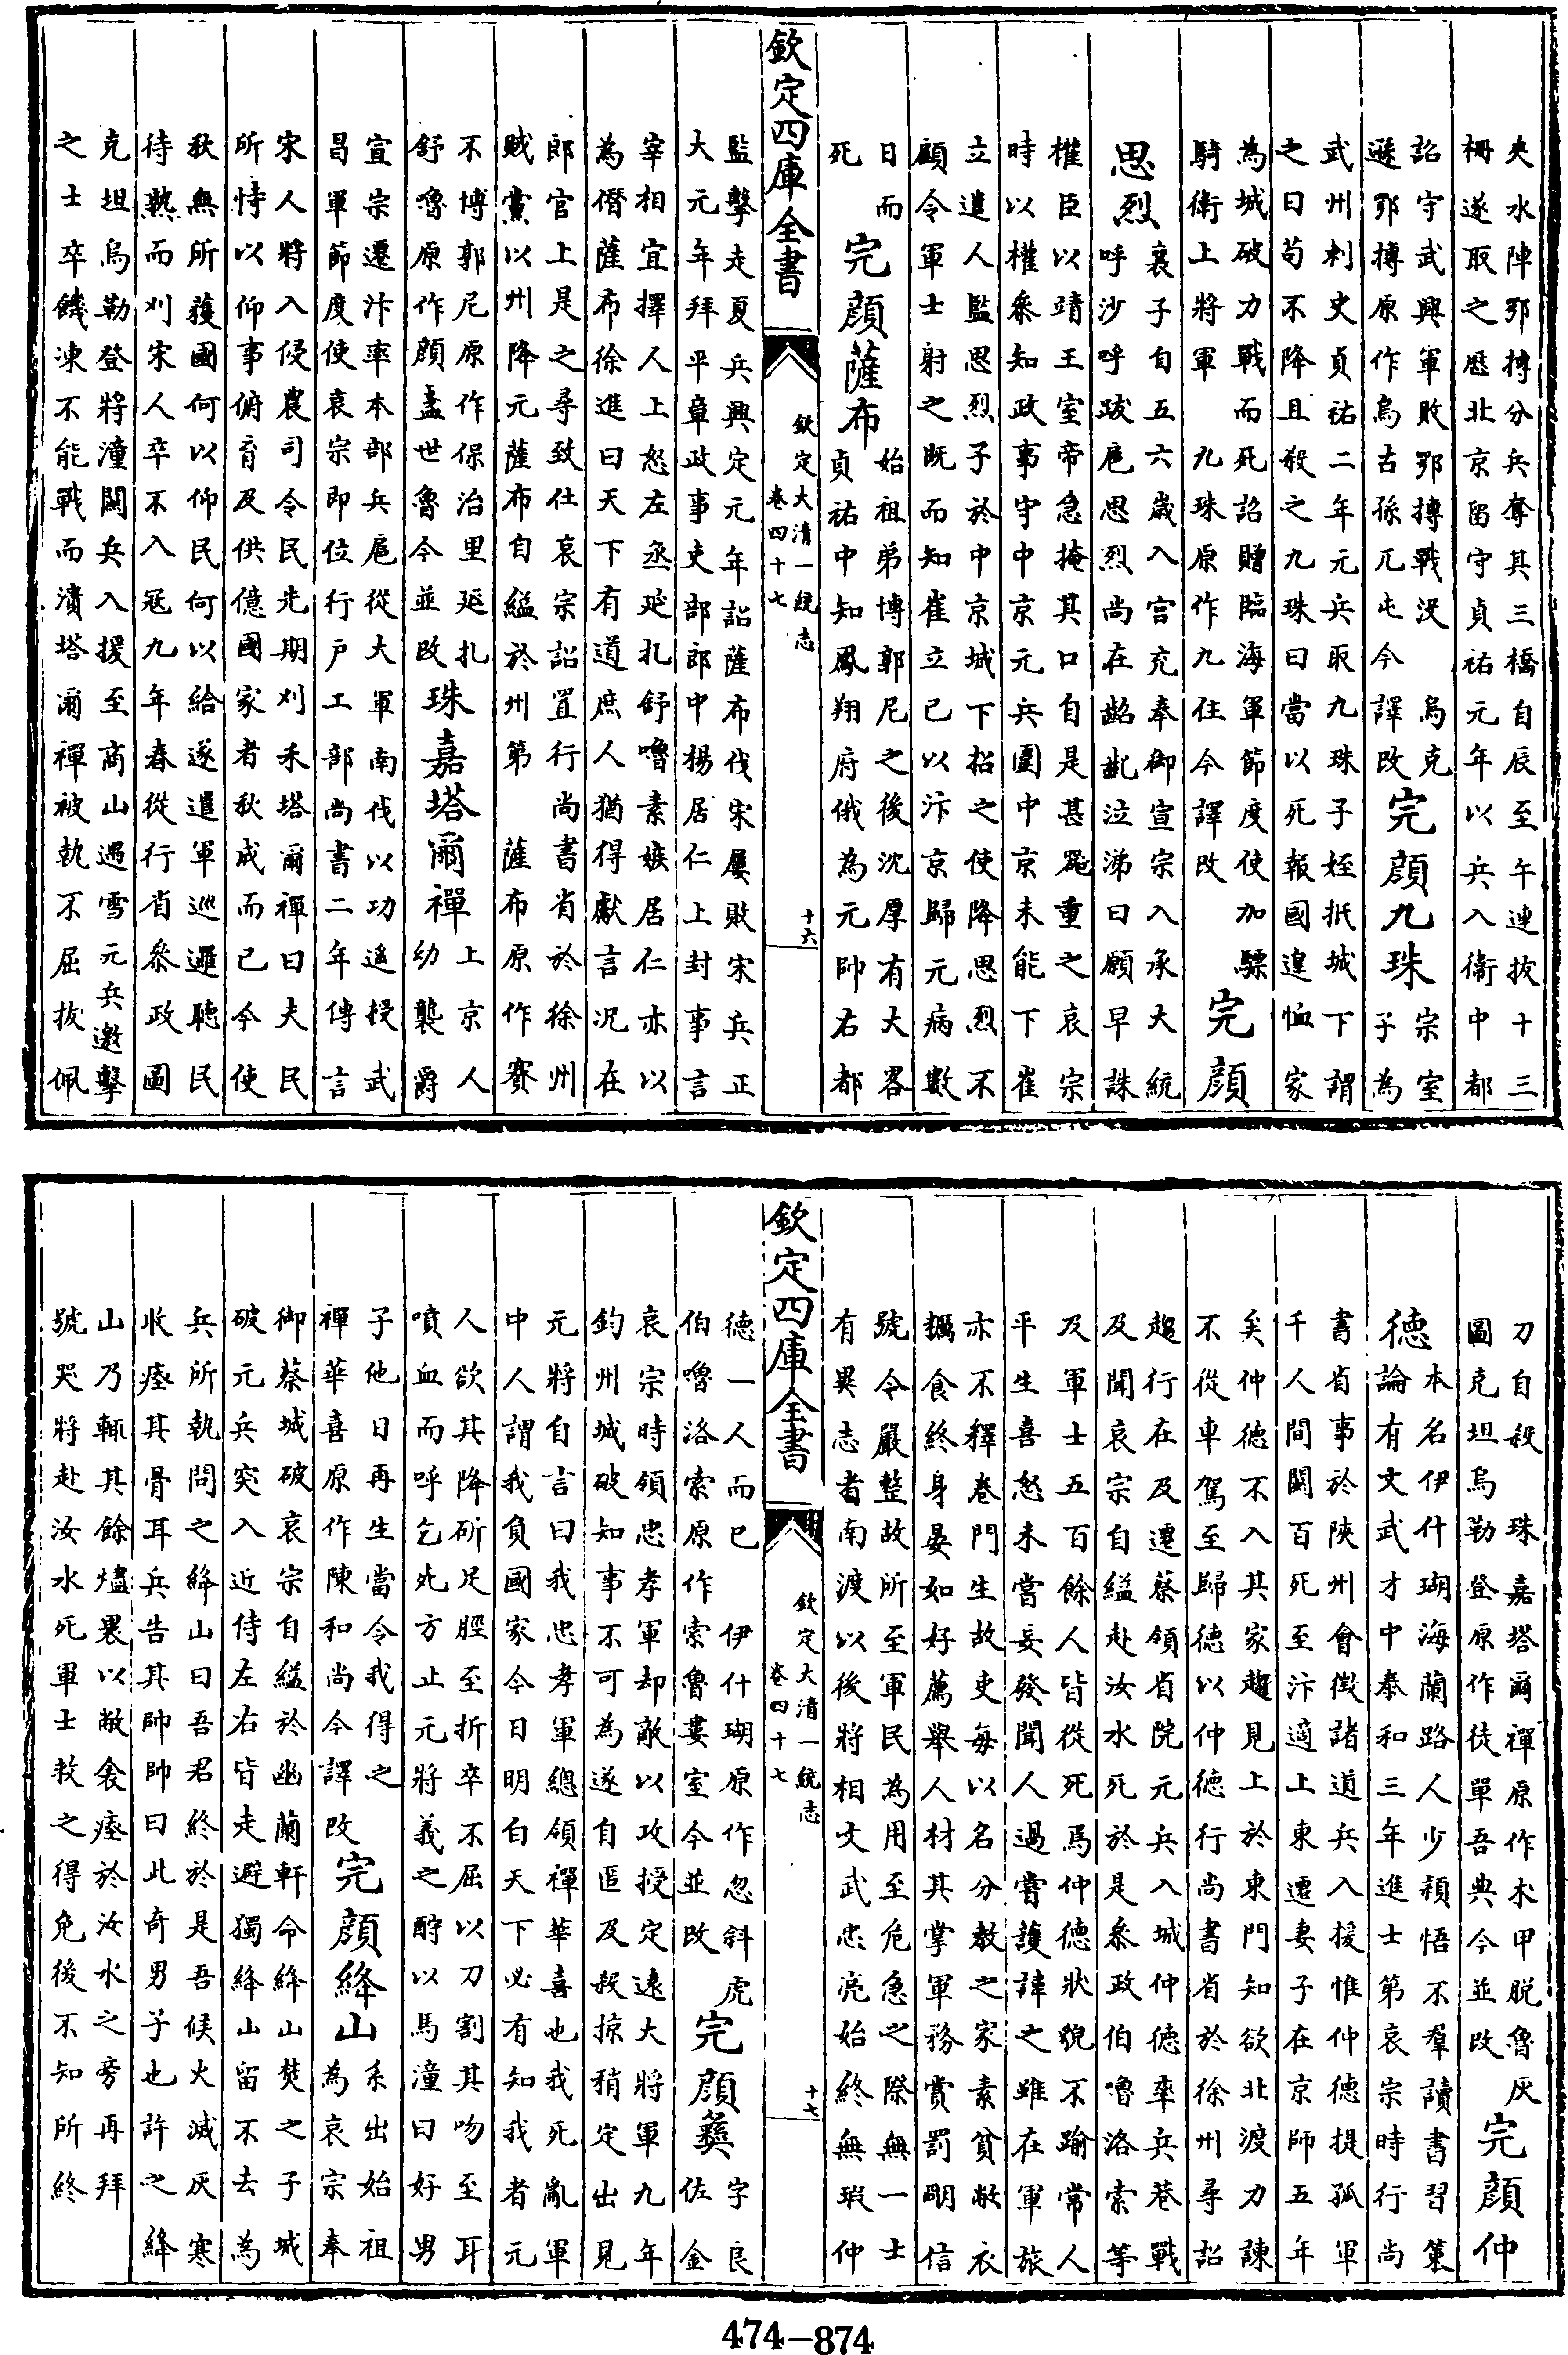 夾水陣鄂摶分兵奪其三橋自辰至午連拔十三
柵遂取之歷北京留守貞祐元年以兵入衞中都
詔守武興軍敗鄂摶戰沒 烏克
遜鄂摶原作烏古孫兀屯今譯改 完顔九珠 宗室
子為
武州刺史貞祐二年元兵取九珠子姪抵城下謂
之曰苟不降且殺之九珠曰當以死報國遑恤家
為城破力戰而死詔贈臨海軍節度使加驃
騎衛上將軍 九珠原作九住今譯改 完顔
思烈 襄子自五六歲入宫充奉御宣宗入承大統
呼沙呼跋扈思烈尚在齠齔泣涕曰願早誅
權臣以靖王室帝急掩其口自是甚器重之哀宗
時以權叅知政事守中京元兵圍中京未能下崔
立遣人監思烈子於中京城下招之使降思烈不
顧令軍士射之既而知崔立已以汴京歸元病數
日而
死 完顔薩布 始祖弟博郭尼之後沈厚有大畧
貞祐中知鳳翔府俄為元帥右都
欽定四庫全書
欽定大清一統志
卷四十七
十六
監擊走夏兵興定元年詔薩布伐宋屢敗宋兵正
大元年拜平章政事吏部郎中楊居仁上封事言
宰相宜擇人上怒左丞延扎舒嚕素嫉居仁亦以
為僭薩布徐進曰天下有道庶人猶得獻言况在
郎官上是之尋致仕哀宗詔置行尚書省於徐州
賊黨以州降元薩布自縊於州第 薩布原作賽
不博郭尼原作保治里延扎
舒嚕原作顔盞世魯今並改 珠嘉塔爾禪 上京人
幼襲爵
宣宗遷汴率本部兵扈從大軍南伐以功遥授武
昌軍節度使哀宗即位行户工部尚書二年傳言
宋人將入侵農司令民先期刈禾塔爾禪曰夫民
所恃以仰事俯育及供億國家者秋成而已今使
秋無所穫國何以仰民何以給遂遣軍巡邏聽民
待熟而刈宋人卒不入冦九年春從行省叅政圖
克坦烏勒登將潼關兵入援至商山遇雪元兵邀擊
之士卒饑凍不能戰而潰塔爾禪被執不屈拔佩
刀自殺 珠嘉塔爾禪原作术甲脱魯灰
圖克坦烏勒登原作徒單吾典今並改 完顔仲
德 本名伊什瑚海蘭路人少穎悟不羣讀書習策
論有文武才中泰和三年進士第哀宗時行尚
書省事於陜州會徵諸道兵入援惟仲德提孤軍
千人間關百死至汴適上東遷妻子在京師五年
矣仲德不入其家趨見上於東門知欲北渡力諫
不從車駕至歸德以仲德行尚書省於徐州尋詔
趨行在及遷蔡領省院元兵入城仲德率兵巷戰
及聞哀宗自縊赴汝水死於是叅政伯嚕洛索等
及軍士五百餘人皆從死焉仲德狀貌不踰常人
平生喜怒未嘗妄發聞人過嘗護諱之雖在軍旅
亦不釋卷門生故吏每以名分教之家素貧敝衣
糲食終身晏如好薦舉人材其掌軍務賞罰明信
號令嚴整故所至軍民為用至危急之際無一士
有異志者南渡以後將相文武忠亮始終無瑕仲
欽定四庫全書
欽定大清一統志
卷四十七
十七
德一人而已 伊什瑚原作忽斜虎
伯嚕洛索原作索魯婁室今並改 完顔彝 字良
佐金
哀宗時領忠孝軍却敵以攻授定遠大將軍九年
鈞州城破知事不可為遂自匿及殺掠稍定出見
元將自言曰我忠孝軍總領禪華喜也我死亂軍
中人謂我負國家今日明白天下必有知我者元
人欲其降斫足脛至折卒不屈以刀割其吻至耳
噴血而呼乞死方止元將義之酹以馬潼曰好男
子他日再生當令我得之
禪華喜原作陳和尚今譯改 完顔絳山 系出始祖
為哀宗奉
御蔡城破哀宗自縊於幽蘭軒命絳山焚之子城
破元兵突入近侍左右皆走避獨絳山留不去為
兵所執問之絳山曰吾君終於是吾候火滅灰寒
收瘞其骨耳兵告其帥帥曰此奇男子也許之絳
山乃輒其餘燼裹以敝衾瘞於汝水之旁再拜
號哭將赴汝水死軍士救之得免後不知所終
474—874